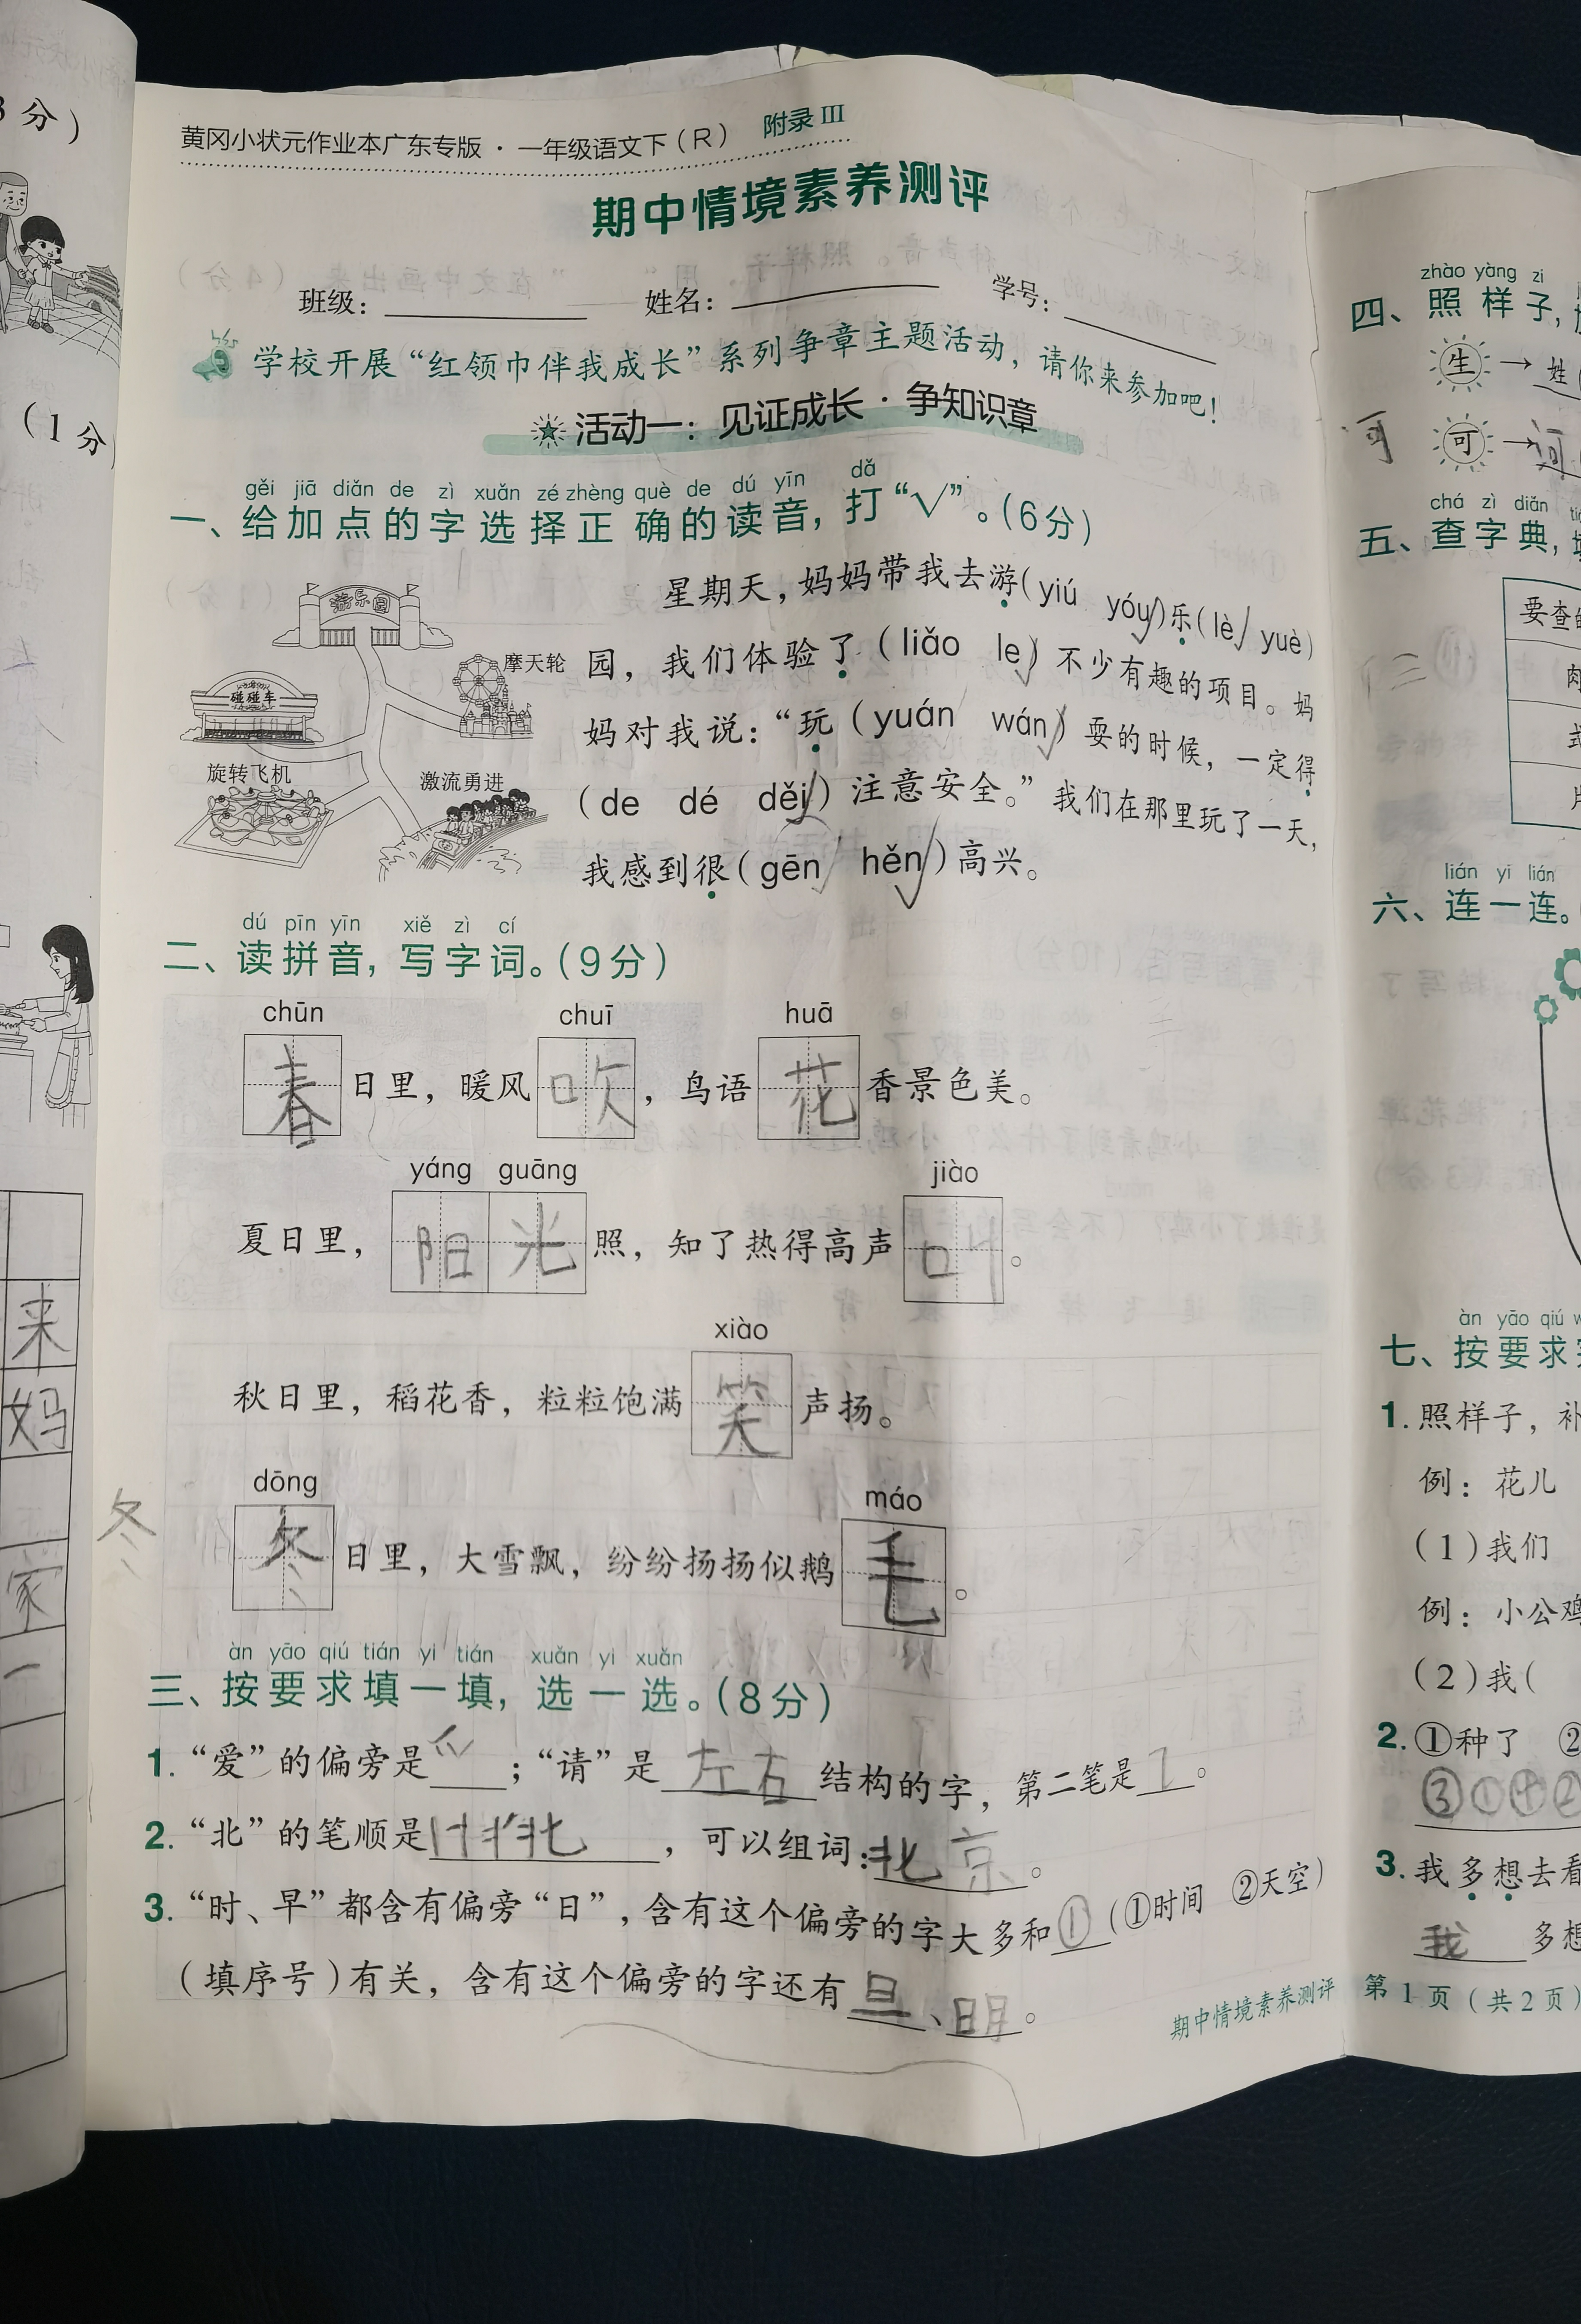 3分)
(1分
来
妈
家
一
黄冈小状元作业本广东专版·一年级语文下(R) 附录Ⅲ
期中情境素养测评
班级: 姓名: 学号:
学校开展“红领巾伴我成长”系列争章主题活动,请你来参加吧!
活动一:见证成长·争知识章
gěi jiā diǎn de zì xuǎn zé zhèng què de dú yīn dǎ
一、给加点的字选择正确的读音,打“√”。(6分)
游乐园
摩天轮
碰碰车
旋转飞机
激流勇进
星期天,妈妈带我去游(yiú yóu√)乐(lè√ yuè)
园,我们体验了(liǎo le√)不少有趣的项目。妈
妈对我说:“玩(yuán wán√)耍的时候,一定得
(de dé děi√)注意安全。”我们在那里玩了一天,
我感到很(gēn hěn√)高兴。
dú pīn yīn xiě zì cí
二、读拼音,写字词。(9分)
chūn chuī huā
春日里,暖风吹,鸟语花香景色美。
yáng guāng jiào
夏日里,阳光照,知了热得高声叫。
xiào
秋日里,稻花香,粒粒饱满笑声扬。
dōng máo
冬
冬日里,大雪飘,纷纷扬扬似鹅毛。
àn yāo qiú tián yi tián xuǎn yi xuǎn
三、按要求填一填,选一选。(8分)
1.“爱”的偏旁是爫;“请”是左右结构的字,第二笔是㇊。
2.“北”的笔顺是北,可以组词:北京。
3.“时、早”都含有偏旁“日”,含有这个偏旁的字大多和①(①时间 ②天空)
(填序号)有关,含有这个偏旁的字还有旦、明。
期中情境素养测评 第1页(共2页)
zhào yàng zi
四、照样子,
生→姓
河 可→河
chá zì diǎn
五、查字典,
要查的
肉
lián yi lián
六、连一连。
àn yāo qiú
七、按要求
1.照样子,补
例:花儿
(1)我们
例:小公鸡
(2)我(
2.①种了 ②
③①④②
3.我多想去看
我 多想